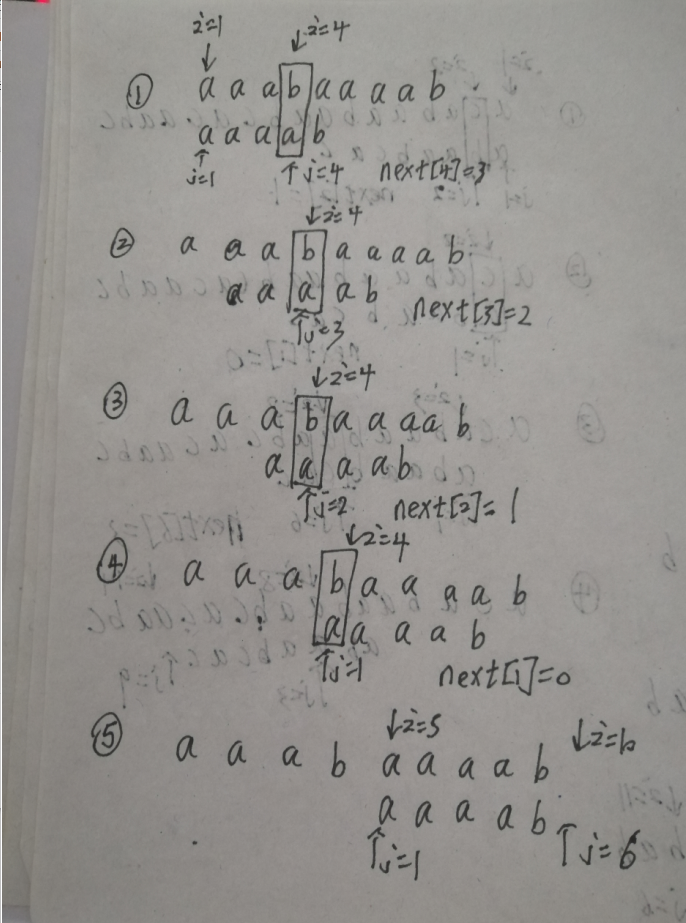 i=1 i=4
① a a a b a a a a b
a a a a b
j=1 j=4 next[4]=3
i=4
② a a a b a a a a b
a a a a b
j=3 next[3]=2
i=4
③ a a a b a a a a b
a a a a b
j=2 next[2]=1
i=4
④ a a a b a a a a b
a a a a b
j=1 next[1]=0
i=5
⑤ a a a b a a a a b
a a a a b
j=1 j=6